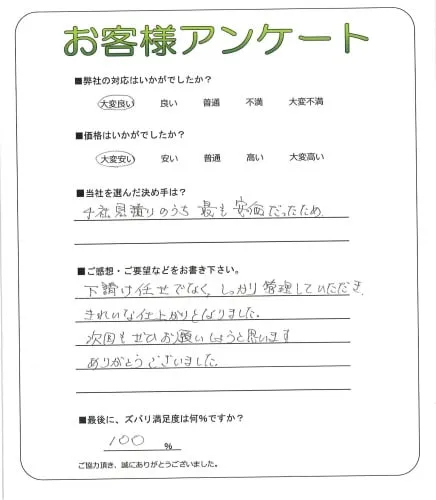 お客様アンケート
■弊社の対応はいかがでしたか?
大変良い 良い 普通 不満 大変不満
■価格はいかがでしたか?
大変安い 安い 普通 高い 大変高い
■当社を選んだ決め手は?
社見積りのうち最も安価だったため
■ご感想・ご要望などをお書き下さい。
下請け任せでなく、しっかり管理していただき、
きれいな仕上がりとなりました。
次回もぜひお願いしようと思います
ありがとうございました。
■最後に、ズバリ満足度は何%ですか?
100 %
ご協力頂き、誠にありがとうございました。